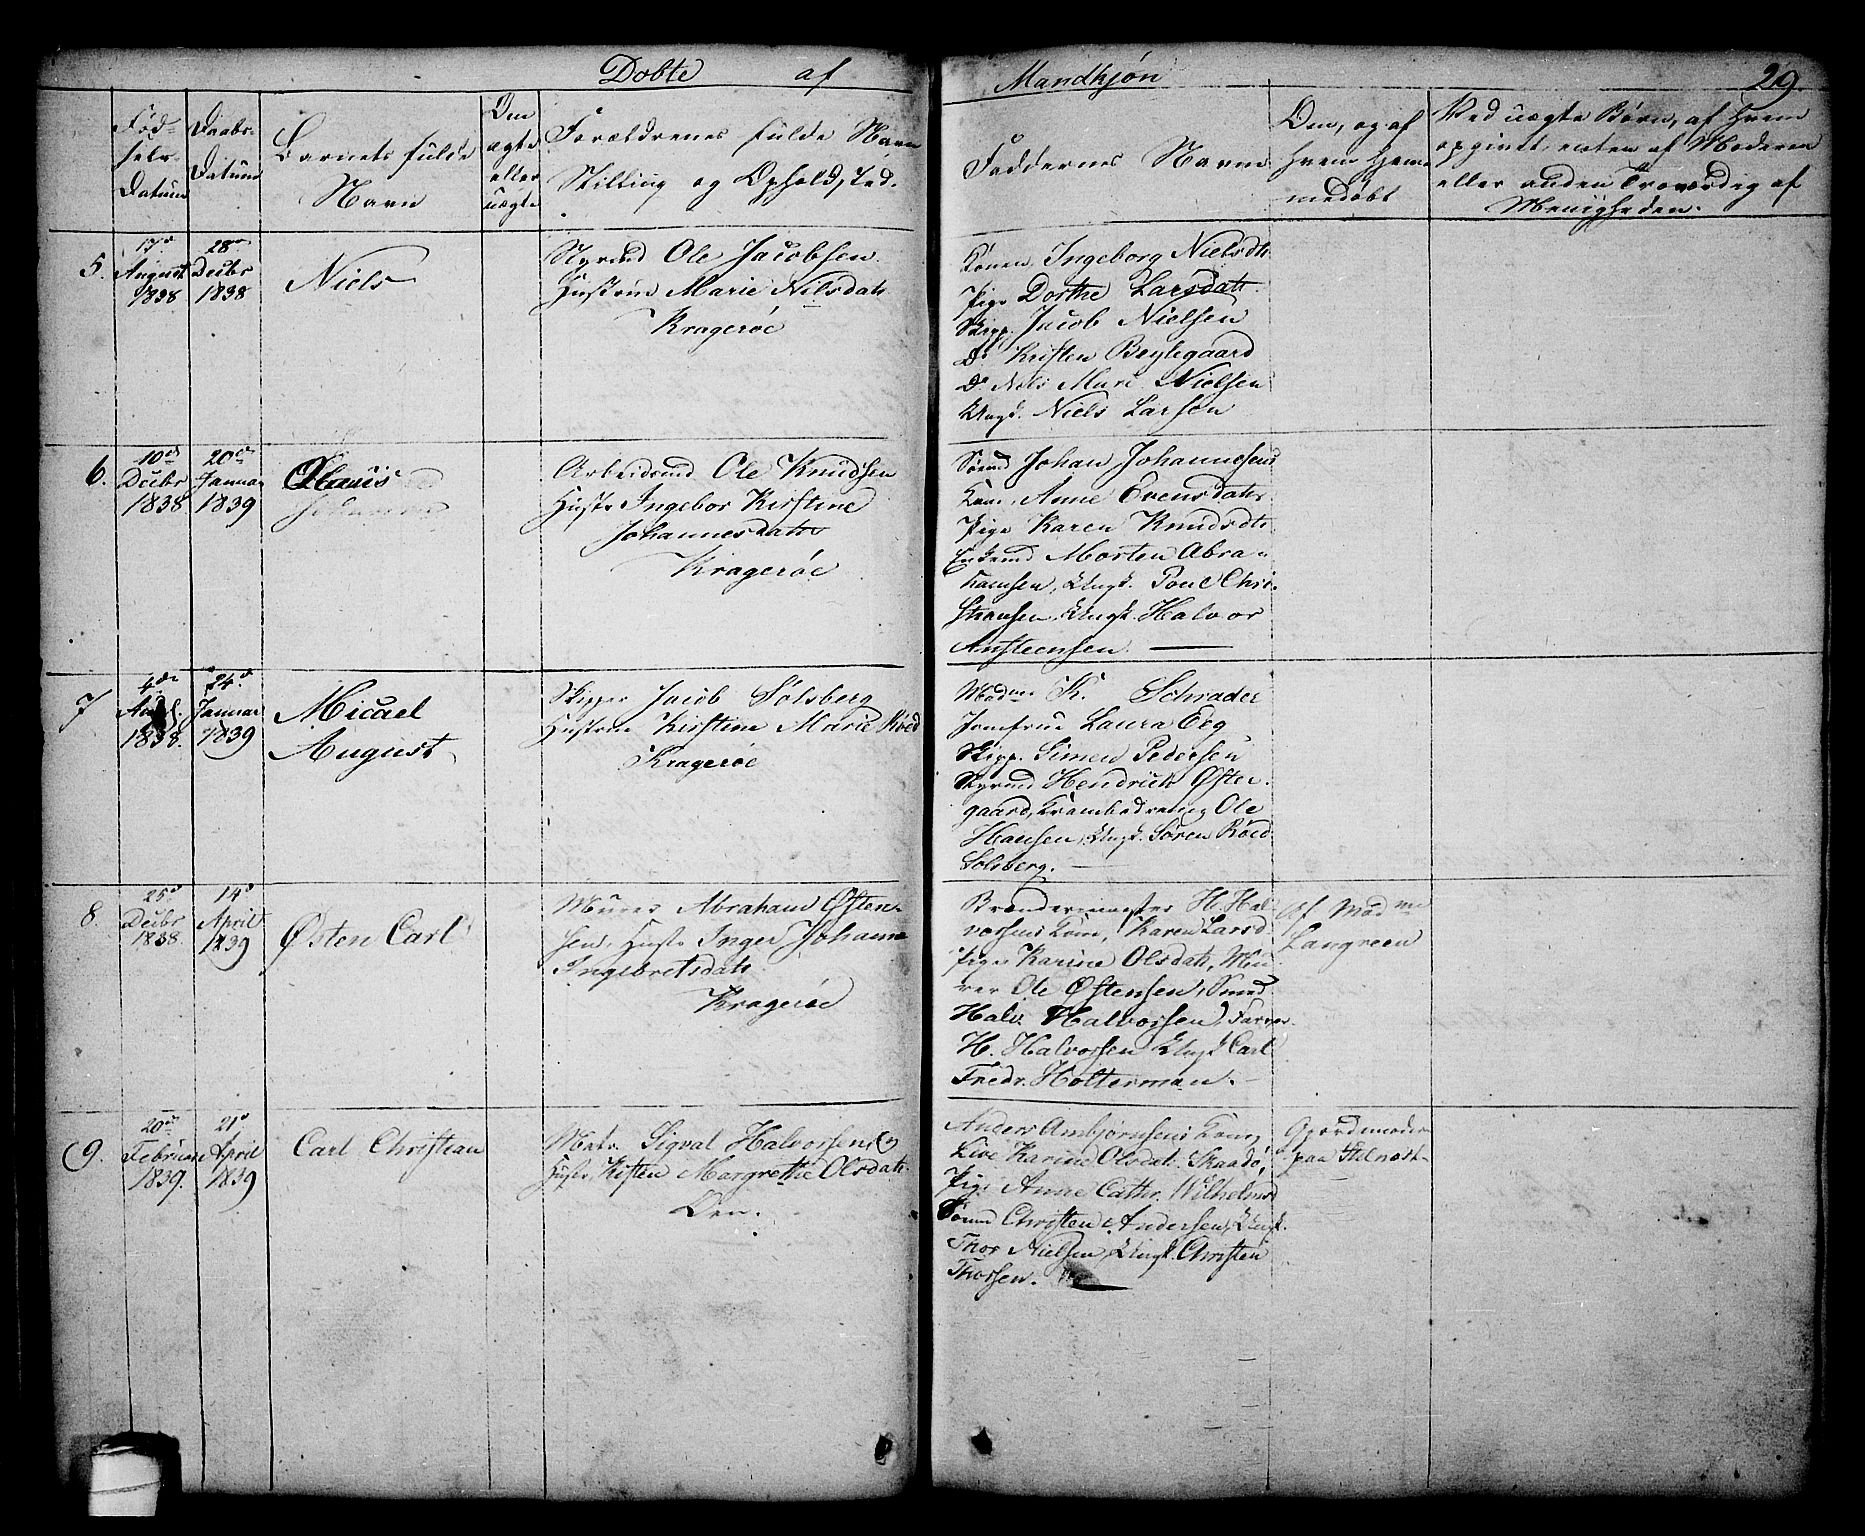 Døbte af Mandkjøn 29.
Fød-
sels-
Datum
Daabs-
Datum
Barnets fulde
Navn
Om
ægte
eller
uægte
Forældrenes fulde Navn
Stilling og Opholdssted.
Faddernes Navne
Om, og af
hvem hjem-
medøbt
Ved uægte Børn, af hvem
opgivet, enten af Moderen
eller anden Troværdig af
Menigheden.
5.
17de
August
1838
28de
Decbr
1838
Niels
Ole Jacobsen
Hustrue Marie Nilsdatr
Kragerøe
Konen Ingeborg Nielsdtr
Pige Dorthe Larsdatr.
Skipp. Jacob Nielsen
Do Kristen Beylegaard
Do Niels Mure Nielsen
Ungk. Niels Larsen
6.
10de
Decbr
1838
20de
Januar
1839
Olauis
Arbeidsmd Ole Knudsen
Hustr Ingebor Kirstine
Johannesdatr
Kragerøe
Johan Johannesens
Kone, Anne Evensdatr
Pige Karen Knudsdtr
Enkemd Morten Abra-
hamsen, Ungk. Poul Chri-
stiansen, Ungk. Halvor
Ansteensen.
7
4de
1838.
24de
Januar
1839
Micael
August
Skipper Jacob Solsberg
Hustrue Kirstine Marie Røed
Kragerøe
Madme K. Schrader
Jomfrue Laura Eeg
Skipp. Simen Pedersen
Hendrick Øster-
gaard, Ole
Hansen, Ungk. Søren Røed
Solsberg.
8.
25de
Decbr
1838.
14de
April
1839
Østen Carl
Murer Abraham Østen-
sen, Hustr Inger Johanne
Ingebretsdatr
Kragerøe
Brændermester H. Hal-
vorsens Kone, Karen Larsd.
Pige Karine Olsdatr, Mu-
rer Ole Østensen, Smed
Halv. Halvorsen, Farver
H. Halvorsen Ungk Carl
Fredr. Holterman.
Af Madme
Langreen
9.
20de
Februar
1839.
21de
April
1839
Carl Christian
Matr. Sigval Halvorsen
Hustr, Kisten Margrethe Olsdatr.
Øen.
Anders Ambjørnsens Kone
Live Karine Olsdat. Skaadø,
Pige Anne Cathr. Wilhelmsd
Christen Andersen, Ungk.
Thor Nielsen, Ungk. Christen
Thorsen.
Gjordemoder
paa